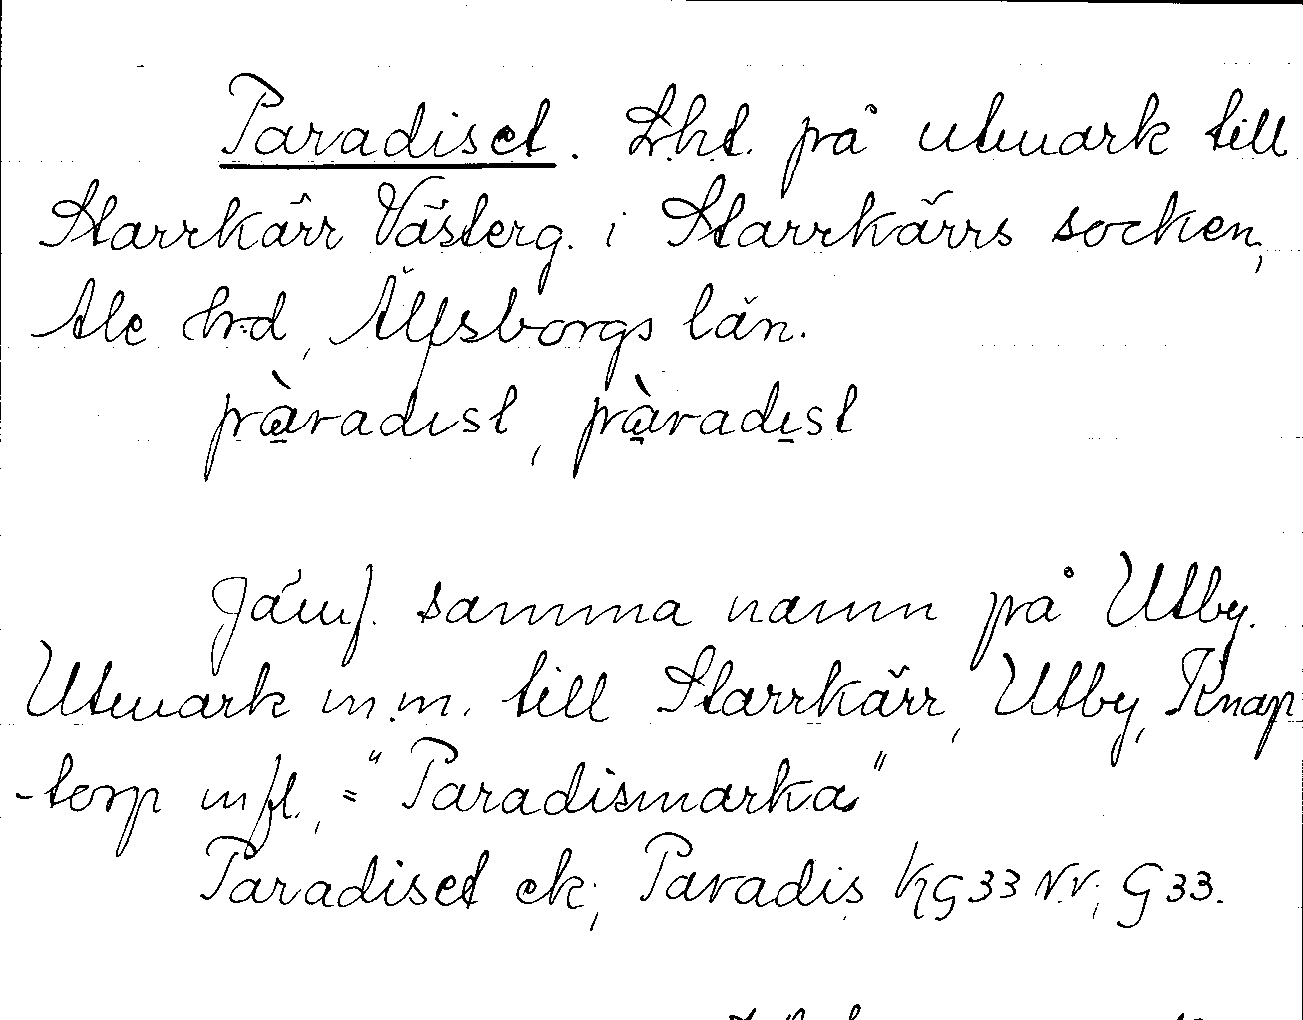 Paradiset. Lht. på utmark till
Starrkärr Västerg. i Starrkärrs socken,
Ale hrd, Älfsborgs län.
pàradıst, pàradı̣st
Jämf. samma namn på Utby.
Utmark m.m. till Starrkärr, Utby, Knap
-torp mfl., = "Paradismarka"
Paradiset ek; Paradis KG33 NV; G33.